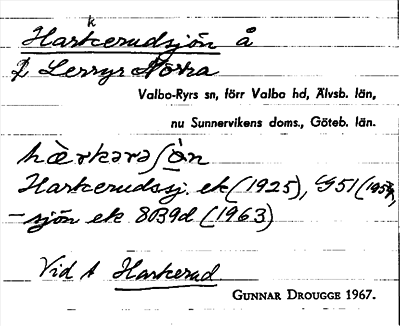 Harkerudsjön å
k
2 Lerryr Norra
Valbo-Ryrs sn, förr Valbo hd, Älvsb. län,
nu Sunnervikens doms., Göteb. län.
hæ̀rkərəʃö̀n
Harkerudssj. ek (1925), GS51 (1954),
–sjön ek 8D39d (1963)
Vid t Harkerud
GUNNAR DROUGGE 1967.